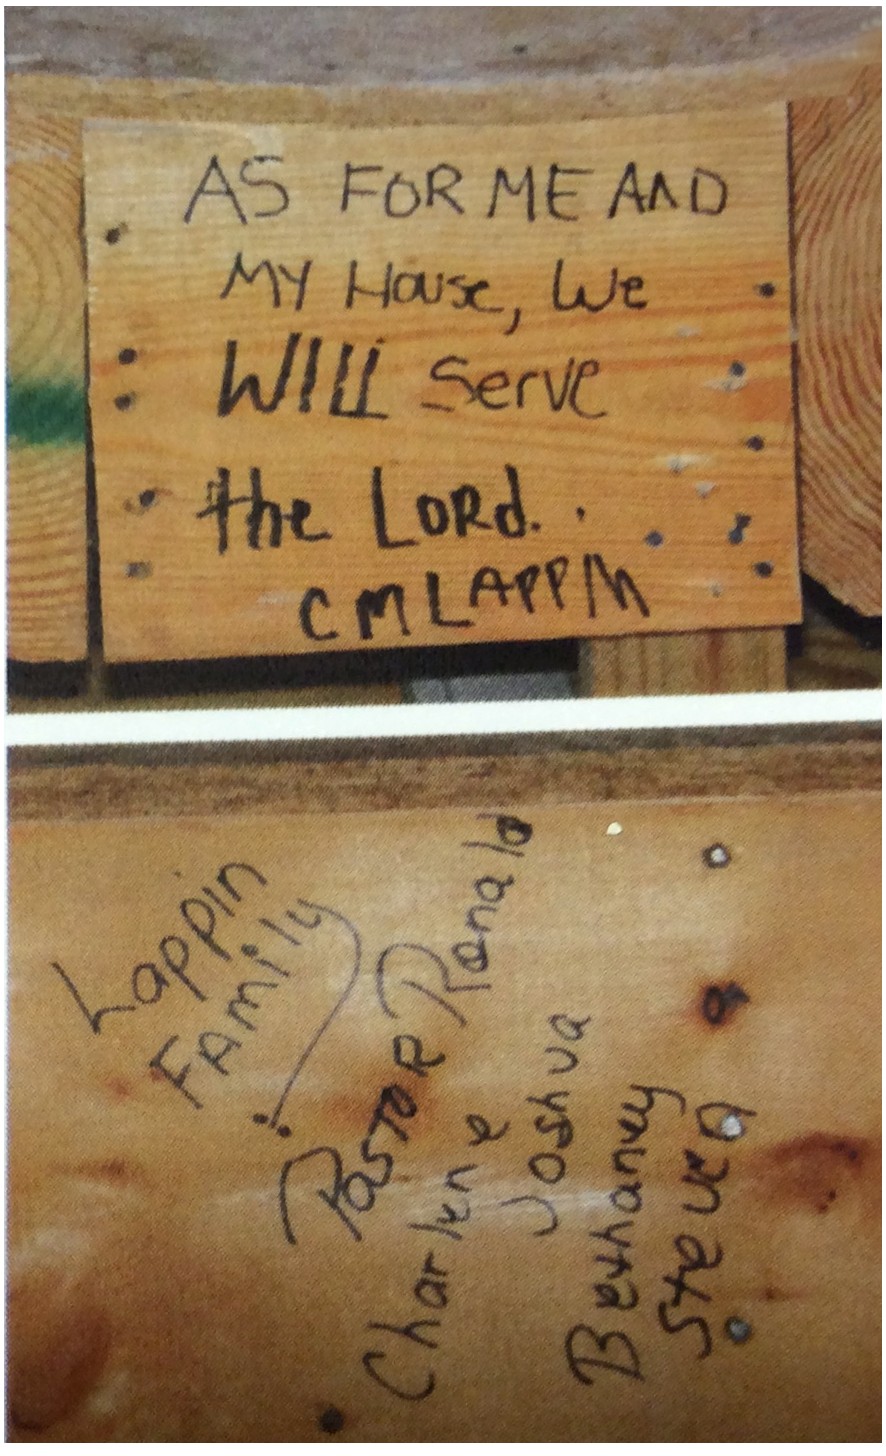 AS FOR ME AND
MY House, We
WILL Serve
the LORd. .
CMLAPPIN
Lappin
FAMily :
PASTOR Ronald
Charlene
Joshua
Bethaney
Steven